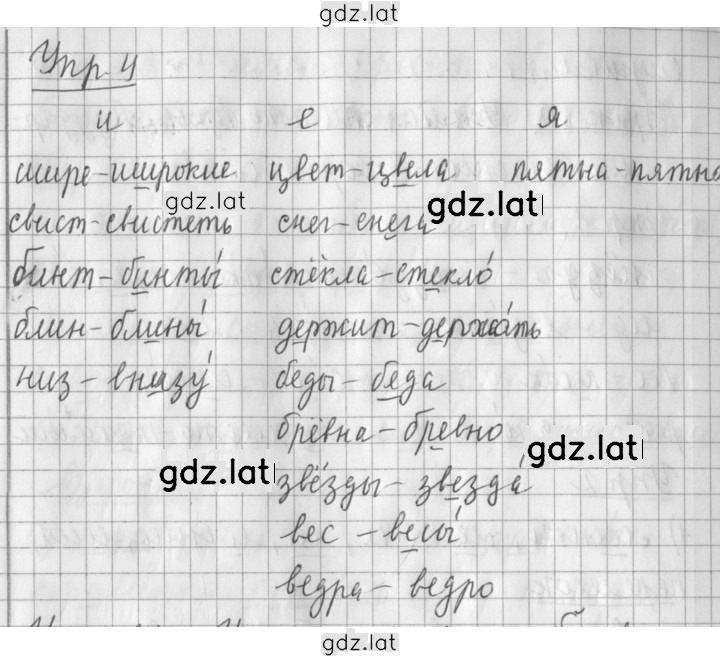 gdz.lat
Упр 4
и е я
шире-широкие цвет-цвела пятна-пятно
gdz.lat gdz.lat
свист-свистеть снег-снега
бинт-бинты́ стёкла-стекло́
блин-блины́ держит-держа́ть
низ-внизу́ беды-беда
брёвна-бревно
gdz.lat gdz.lat
звёзды-звезда́
вес-весы́
ведра-ведро
gdz.lat